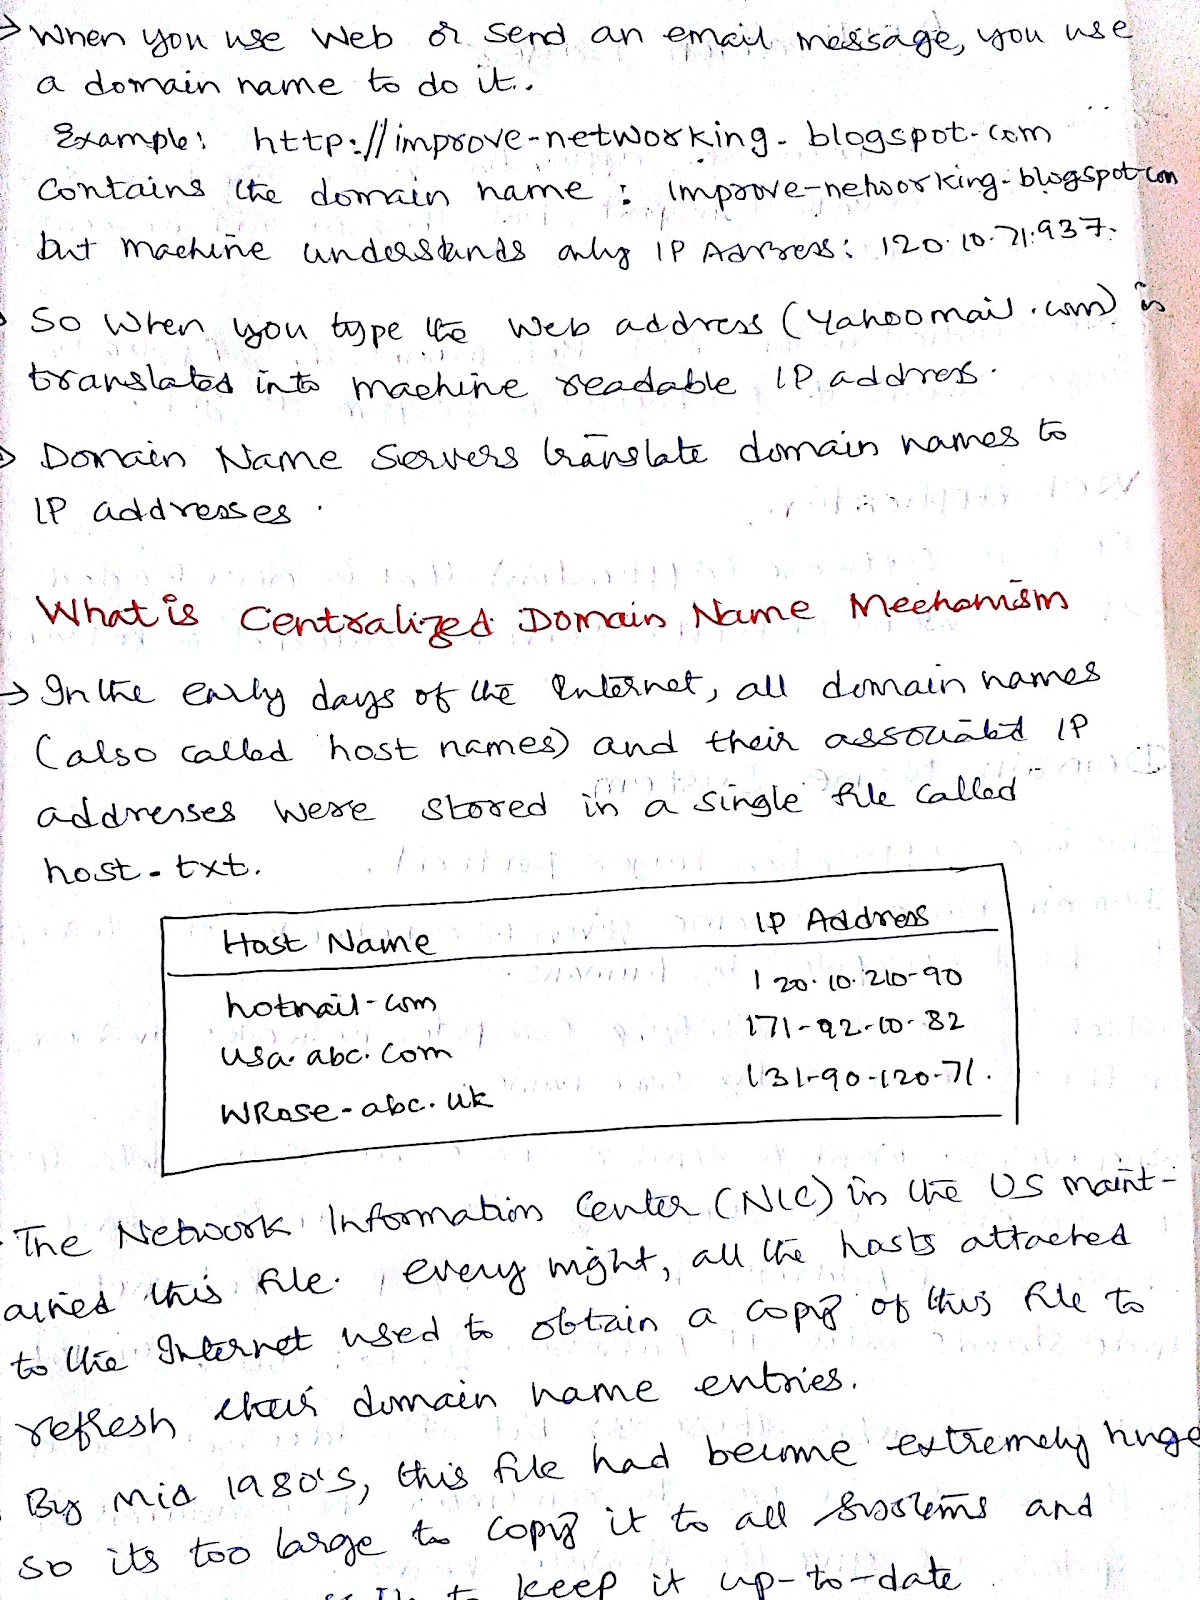 → When you use Web or send an email message, you use
a domain name to do it..
Example: http://improve-networking.blogspot.com
Contains the domain name : improve-networking.blogspot.com
but machine understands only IP Address: 120.10.71.937.
So when you type the web address (Yahoomail.com) is
translated into machine readable IP address.
→ Domain Name Servers translate domain names to
IP addresses.
What is Centralized Domain Name Mechanism
→ In the early days of the Internet, all domain names
(also called host names) and their associated IP
addresses were stored in a single file called
host.txt.
Host Name IP Address
hotmail.com 120.10.210.90
usa.abc.com 171.92.10.82
WRose.abc.uk 131.90.120.71.
The Network Information Center (NIC) in the US maint-
ained this file. every night, all the hosts attached
to the Internet used to obtain a copy of this file to
refresh their domain name entries.
By Mid 1980's, this file had become extremely huge
so its too large to copy it to all systems and
to keep it up-to-date